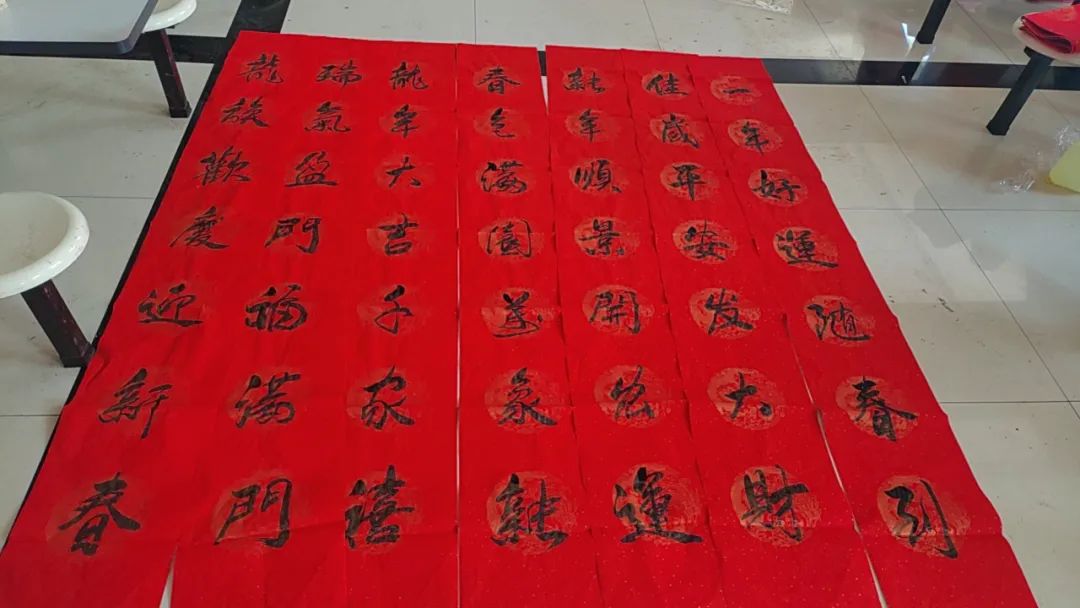 一年好運随春引
佳歲平安发大財
新年順景開宏運
春色满園萬象新
龍年大吉千家禧
瑞氣盈門福满門
龍族歡慶迎新春